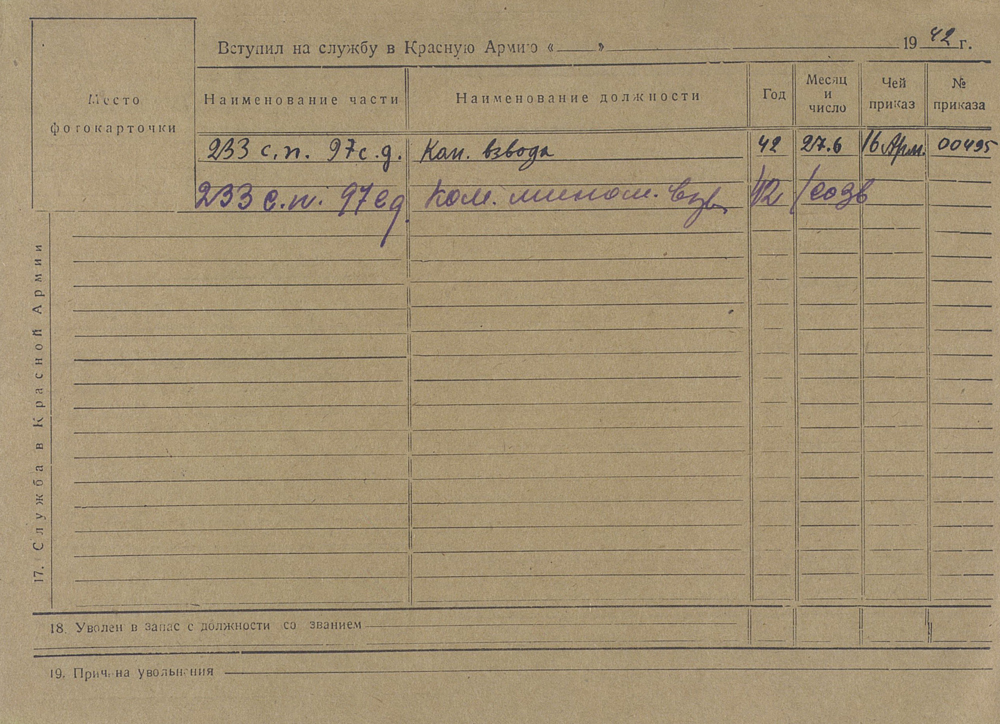 Вступил на службу в Красную Армию «___» ______ 1942 г.
Место
фотокарточки
Наименование части
Наименование должности
Год
Месяц
и
число
Чей
приказ
№
приказа
233 с.п. 97 с.д. Ком. взвода 42 27.6 16 Арм. 00495
233 с.п. 97 сд Ком. мином. взв. 42
17. Служба в Красной Армии
18. Уволен в запас с должности со званием
19. Причина увольнения